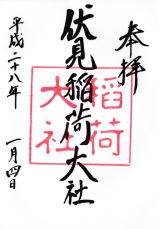 奉拝
伏見稲荷大社
稲荷
大社
平成二十八年
一月四日